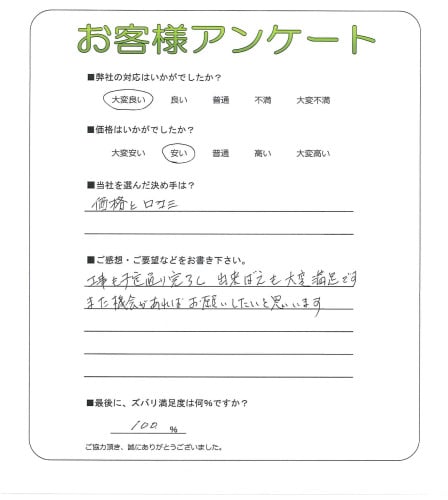 お客様アンケート
■弊社の対応はいかがでしたか？
大変良い 良い 普通 不満 大変不満
■価格はいかがでしたか？
大変安い 安い 普通 高い 大変高い
■当社を選んだ決め手は？
価格と口コミ
■ご感想・ご要望などをお書き下さい。
工事も予定通り完了し 出来ばえも大変満足です
また機会があればお願いしたいと思います
■最後に、ズバリ満足度は何%ですか？
100 %
ご協力頂き、誠にありがとうございました。